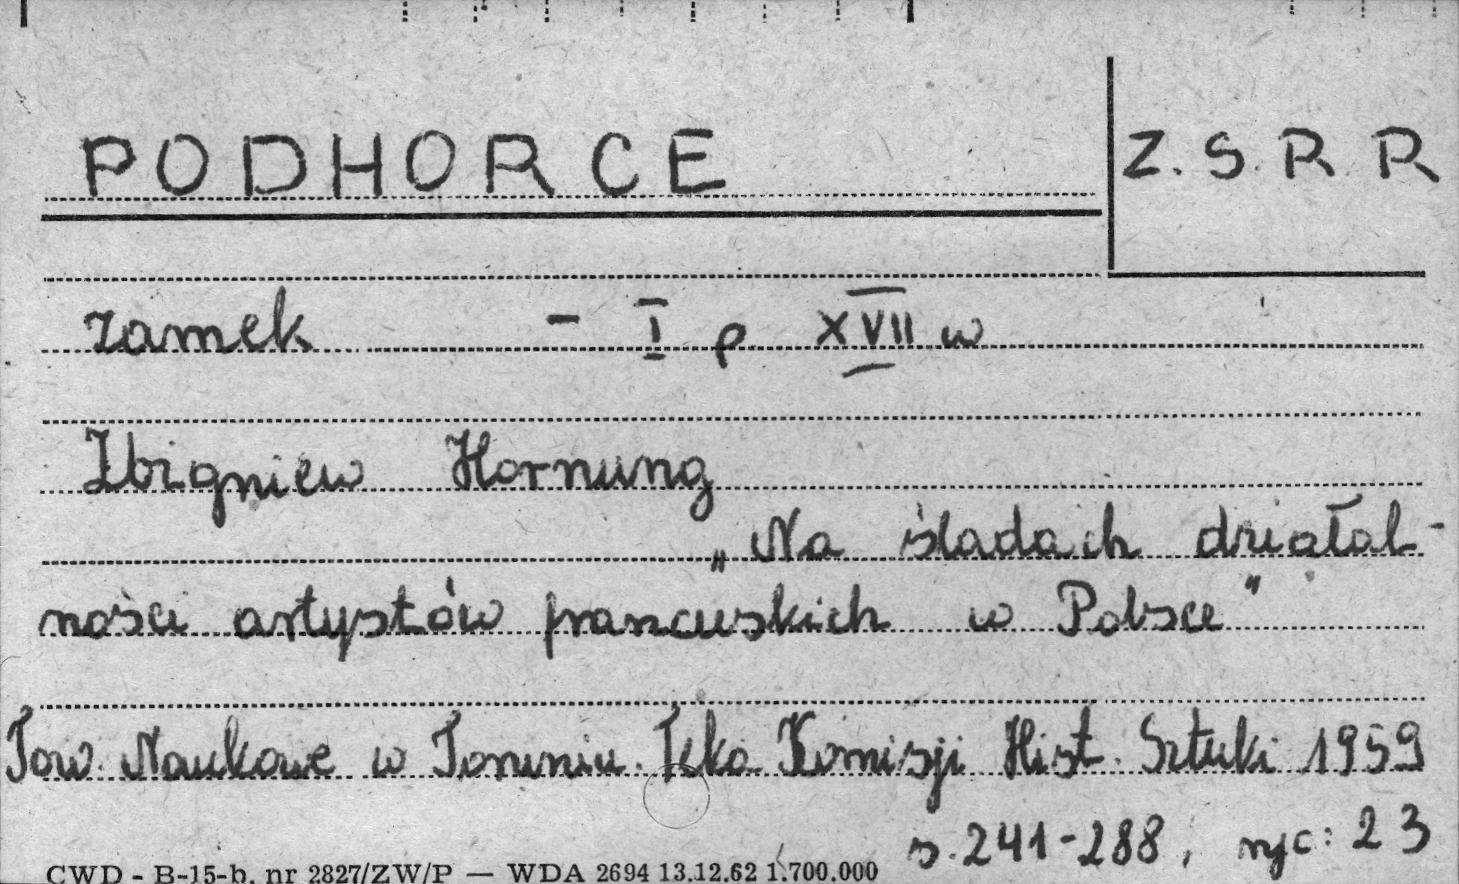 PODHORCE
Z.S.R.R
zamek - I p XVII w
Zbigniew Hornung
„Na śladach działal-
ności artystów francuskich w Polsce"
Tow. Naukowe w Toruniu. Teka Komisji Hist. Sztuki 1959
s. 241-288, ryc: 23
CWD - B-15-b, nr 2827/ZW/P — WDA 2694 13.12.62 1.700.000